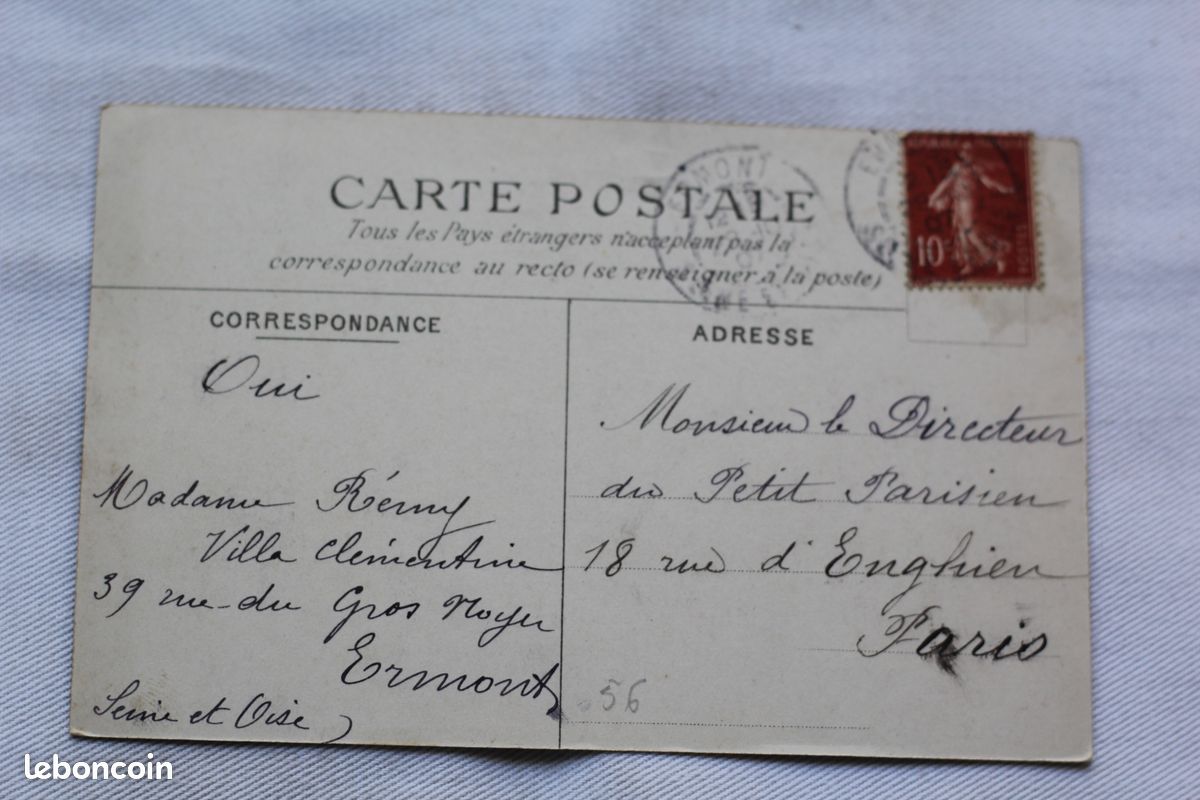 CARTE POSTALE
Tous les Pays étrangers n'acceptent pas la
correspondance au recto (se renseigner à la poste)
CORRESPONDANCE
Oui
Madame Rémy
Villa Clémentine
39 rue du Gros Noyer
Ermont
Seine et Oise
ADRESSE
Monsieur le Directeur
du Petit Parisien
18 rue d'Enghien
Paris
56
10
POSTES
MONT
leboncoin